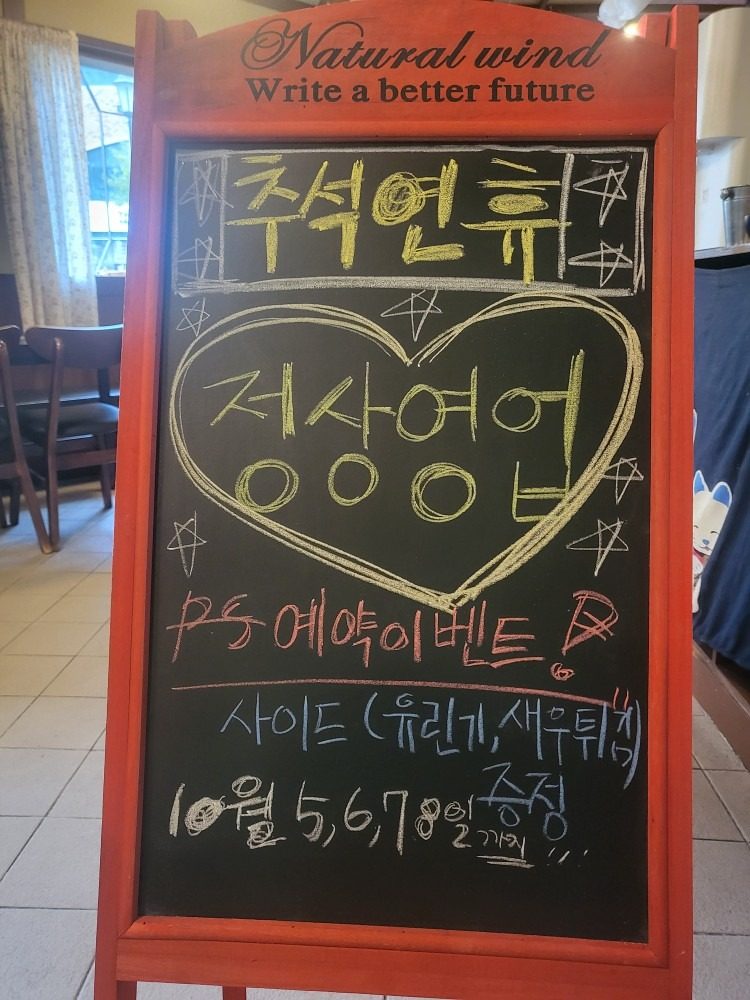 Natural wind
Write a better future
추석연휴
정상영업
PS 예약이벤트!
사이드 (유린기, 새우튀김)
증정
10월 5,6,7 8일까지...